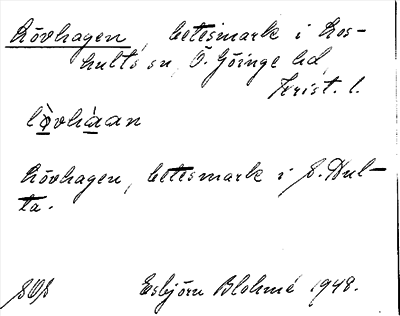 Lövhagen, betesmark i Los-
hults sn, Ö. Göinge hd,
Krist. l.
lòvhàan
Lövhagen, betesmark i S. Hul-
ta.
Esbjörn Blohmé 1948.